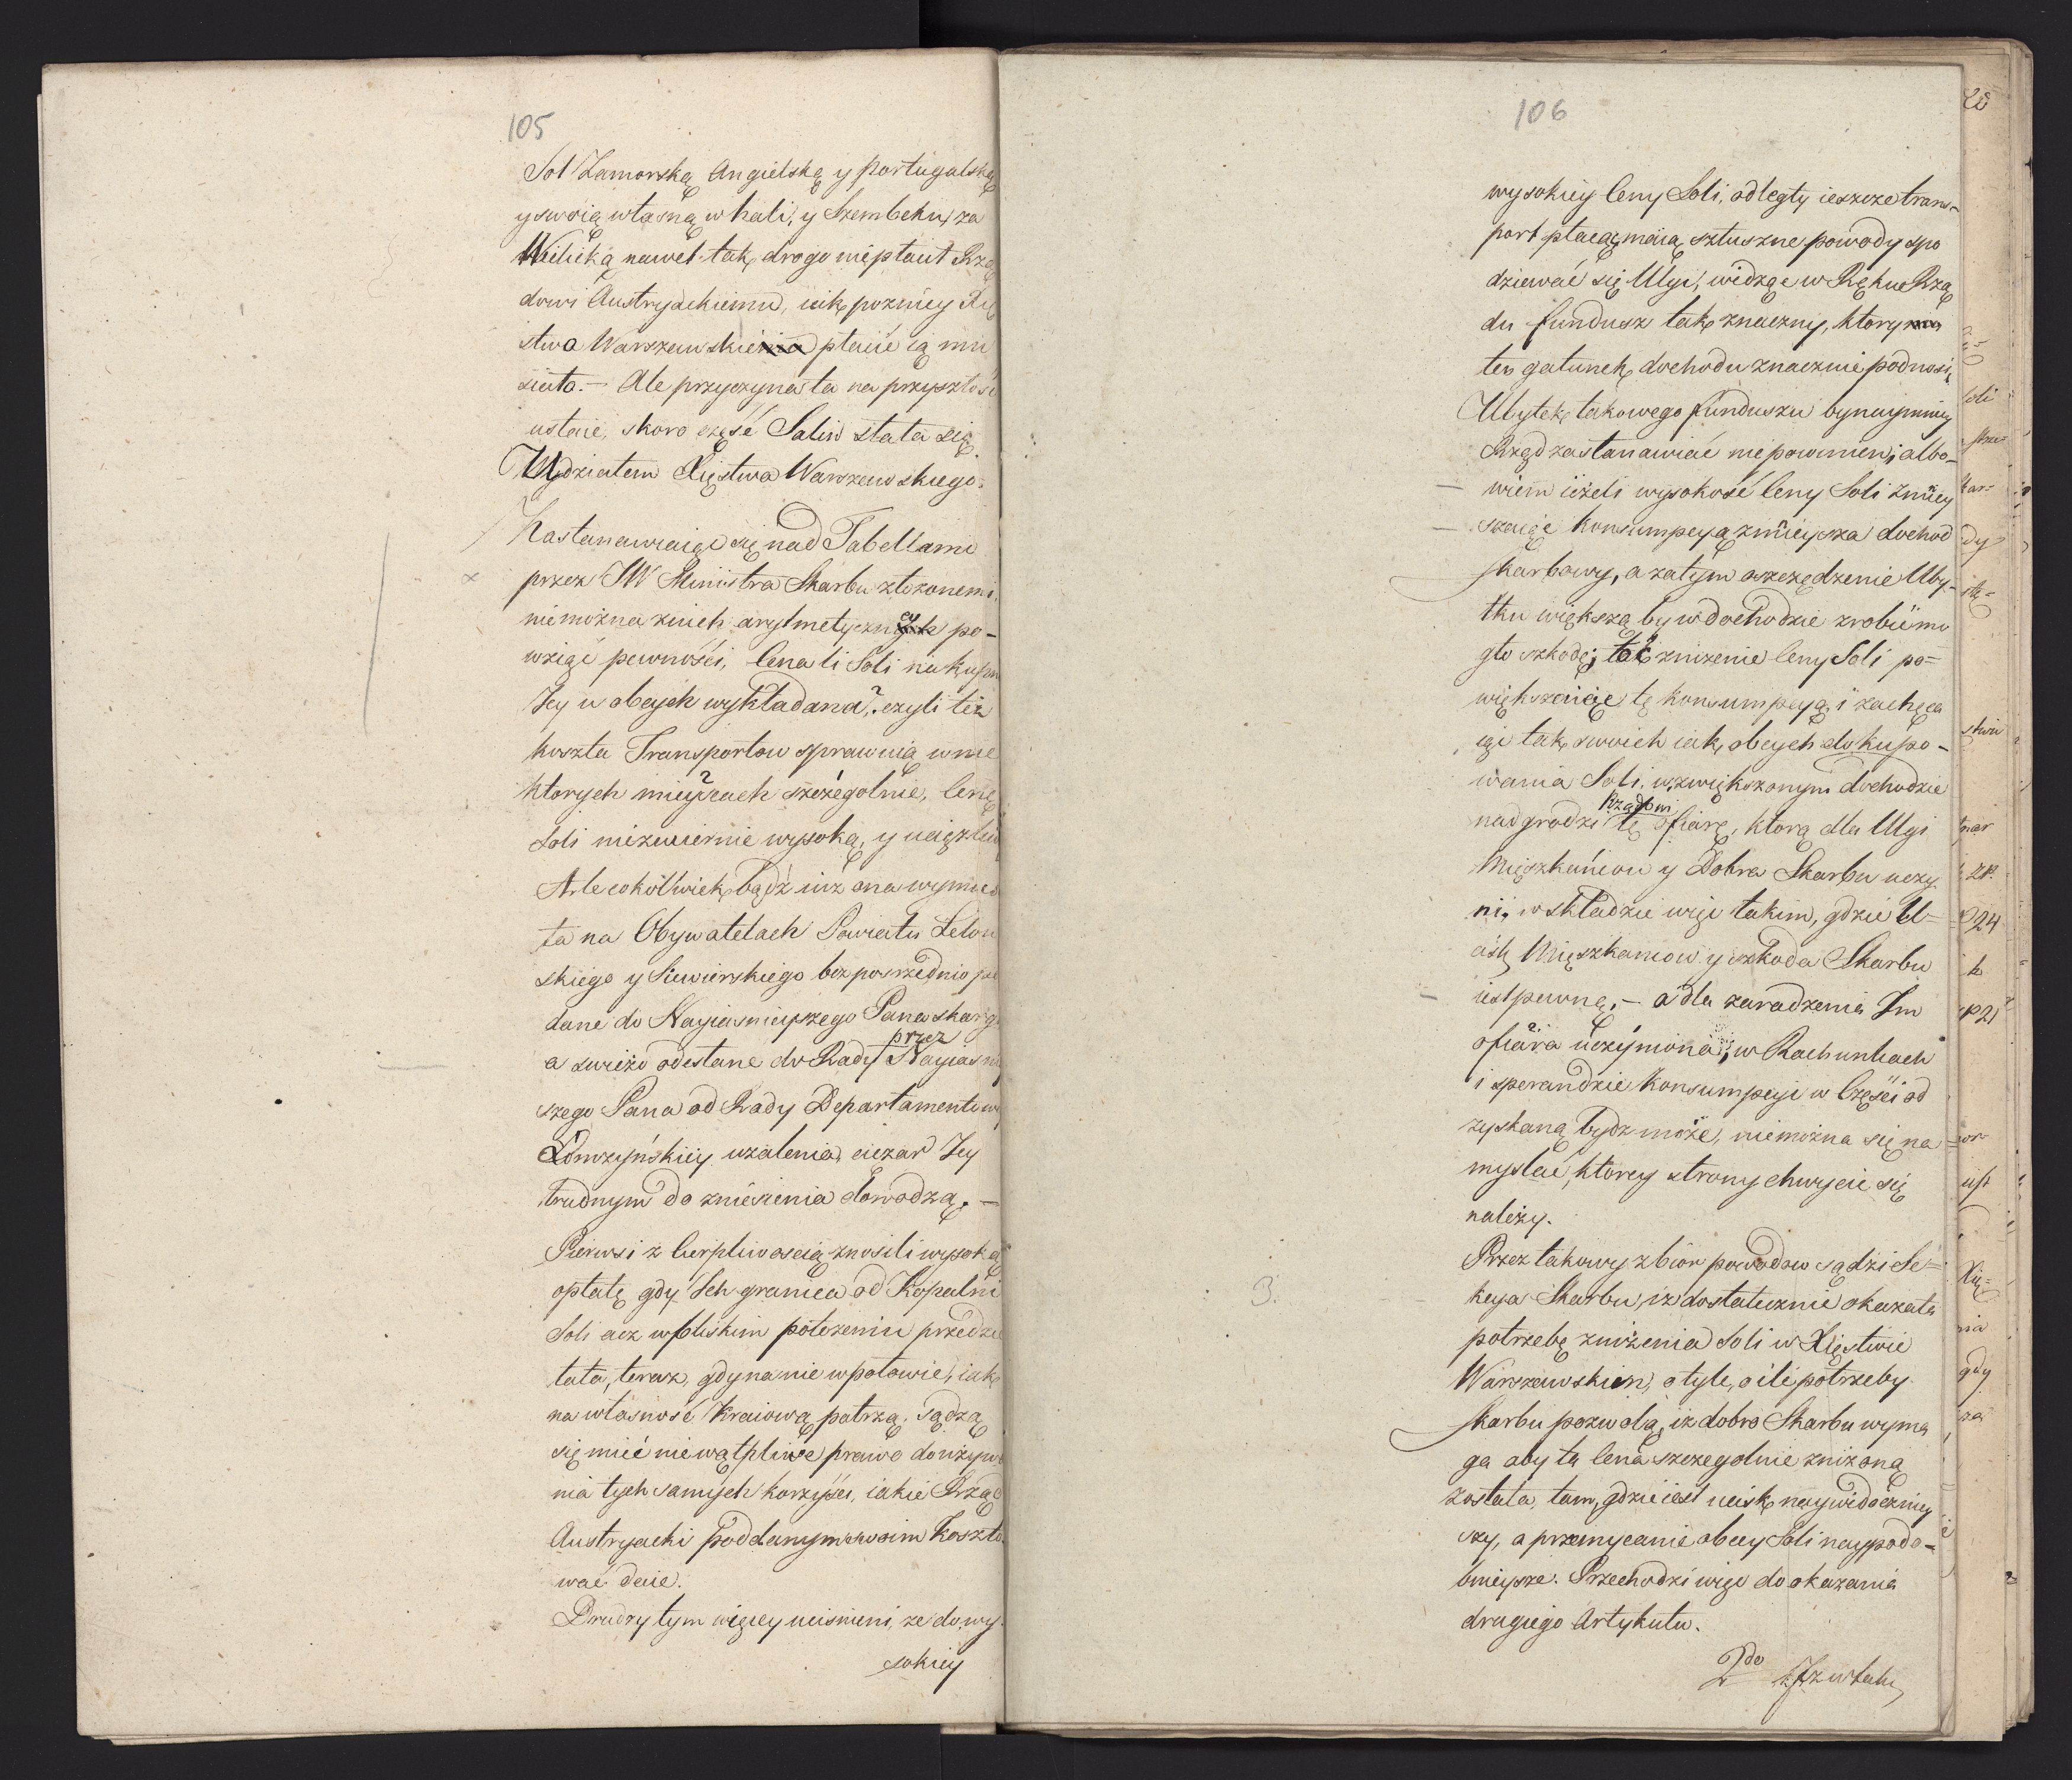 105
Sol Zamorską Angielską y Portugalską
y swoią własną w hali, y Szembeku, za
Wielicką nawet tak drogo niepłacił Rzą
dowi Austryackiemu, iak pozniey Xię
stwo Warszawskie płacić ią mu
siało. – Ale przyczyna ta na przyszłość
ustaie, skoro część Salin stała się
Udziałem Xięstwa Warszawskiego.
Zastanawiaiąc się nad Tabellami
przez JW Ministra Skarbu złozonemi,
niemożna znich arytmetyczney po-
wziąć pewności, Cena li Soli na kupn
Jey u obcych wykładana, czyli też
koszta Transportow sprawuią w nie
ktorych mieyscach szczegolnie, Cenę
Soli niezmiernie wysoką, y uciązliw
Ale cokolwiek bądź iuż ona wymie
ta na Obywatelach Powiatu Lelow
skiego y Siewierskiego bezposrzednio po
dane do Nayiasnieyszego Pana skargi
a swieżo odesłane do Rady przez Nayiasniey
szego Pana od Rady Departamentowey
Łomżyńskiey uzalenia, ciezar Jey
trudnym do zniesienia dowodzą. –
Pierwsi z Cierpliwoscią znosili wysoką
opłatę gdy Ich granica od Kopalni
Soli acz w bliskim połozeniu przedzie
lała, teraz, gdy na nie w połowie, iak
na własność Kraiową patrzą, sądzą
się mieć niewątpliwe prawo do używa
nia tych samych korzyści, iakie Rząd
Austryacki poddanym swoim koszto
wać daie.
Drudzy tym więcey uciśnieni, ze do wy
sokiey
106
wysokiey Ceny Soli, odległy ieszcze trans-
port płacą, maią słuszne powody spo
dziewać się Ulgi, widząc w Ręku Rzą
du fundusz tak znaczny, ktory
ten gatunek dochodu znacznie podnosi,
Ubytek takowego funduszu bynaymniey
Rząd zastanawiać niepowinien, albo-
wiem ieżeli wysokość Ceny Soli zmniey
szaiąc konsumpcyą zmnieysza dochod
Skarbowy, a zatym oszczędzenie Uby-
tku większą by w dochodzie zrobić mo
gło szkodę; to zniżenie Ceny Soli po=
większaiąc tę konsumpcyą, i zachęca
iąc tak swoich iak obcych do kupo-
wania Soli, w zwiększonym dochodzie
nadgrodzi Rządowi tę ofiarę, ktorą dla Ulgi
Mięszkańcow y Dobra Skarbu uczy
ni, w składzie więc takim, gdzie U=
cisk Mięszkancow y szkoda Skarbu
iest pewną, – a dla zaradzenia Im
ofiara uczyniona, w Rachunkach
i sperandzie konsumpcyi w Części od
zyskaną bydz może, niemożna się na=
myslać, ktorey strony chwycić się
należy.
Przez takowy zbior powodow sądzi Se=
kcya Skarbu, iz dostatecznie okazała
potrzebę zniżenia Soli w Xięstwie
Warszawskim, o tyle, o ile potrzeby
Skarbu pozwolą, iz dobro Skarbu wyma
ga aby ta Cena szczegolnie zniżoną
została, tam, gdzie iest ucisk naywidoczniey
szy, a przemycanie obcey Soli naypodo-
bnieysze. Przechodzi więc do okazania
drugiego Artykułu.
3.
2do